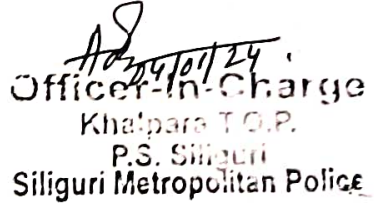 04/01/24
Officer-In-Charge
Khalpara T.O.P.
P.S. Siliguri
Siliguri Metropolitan Police